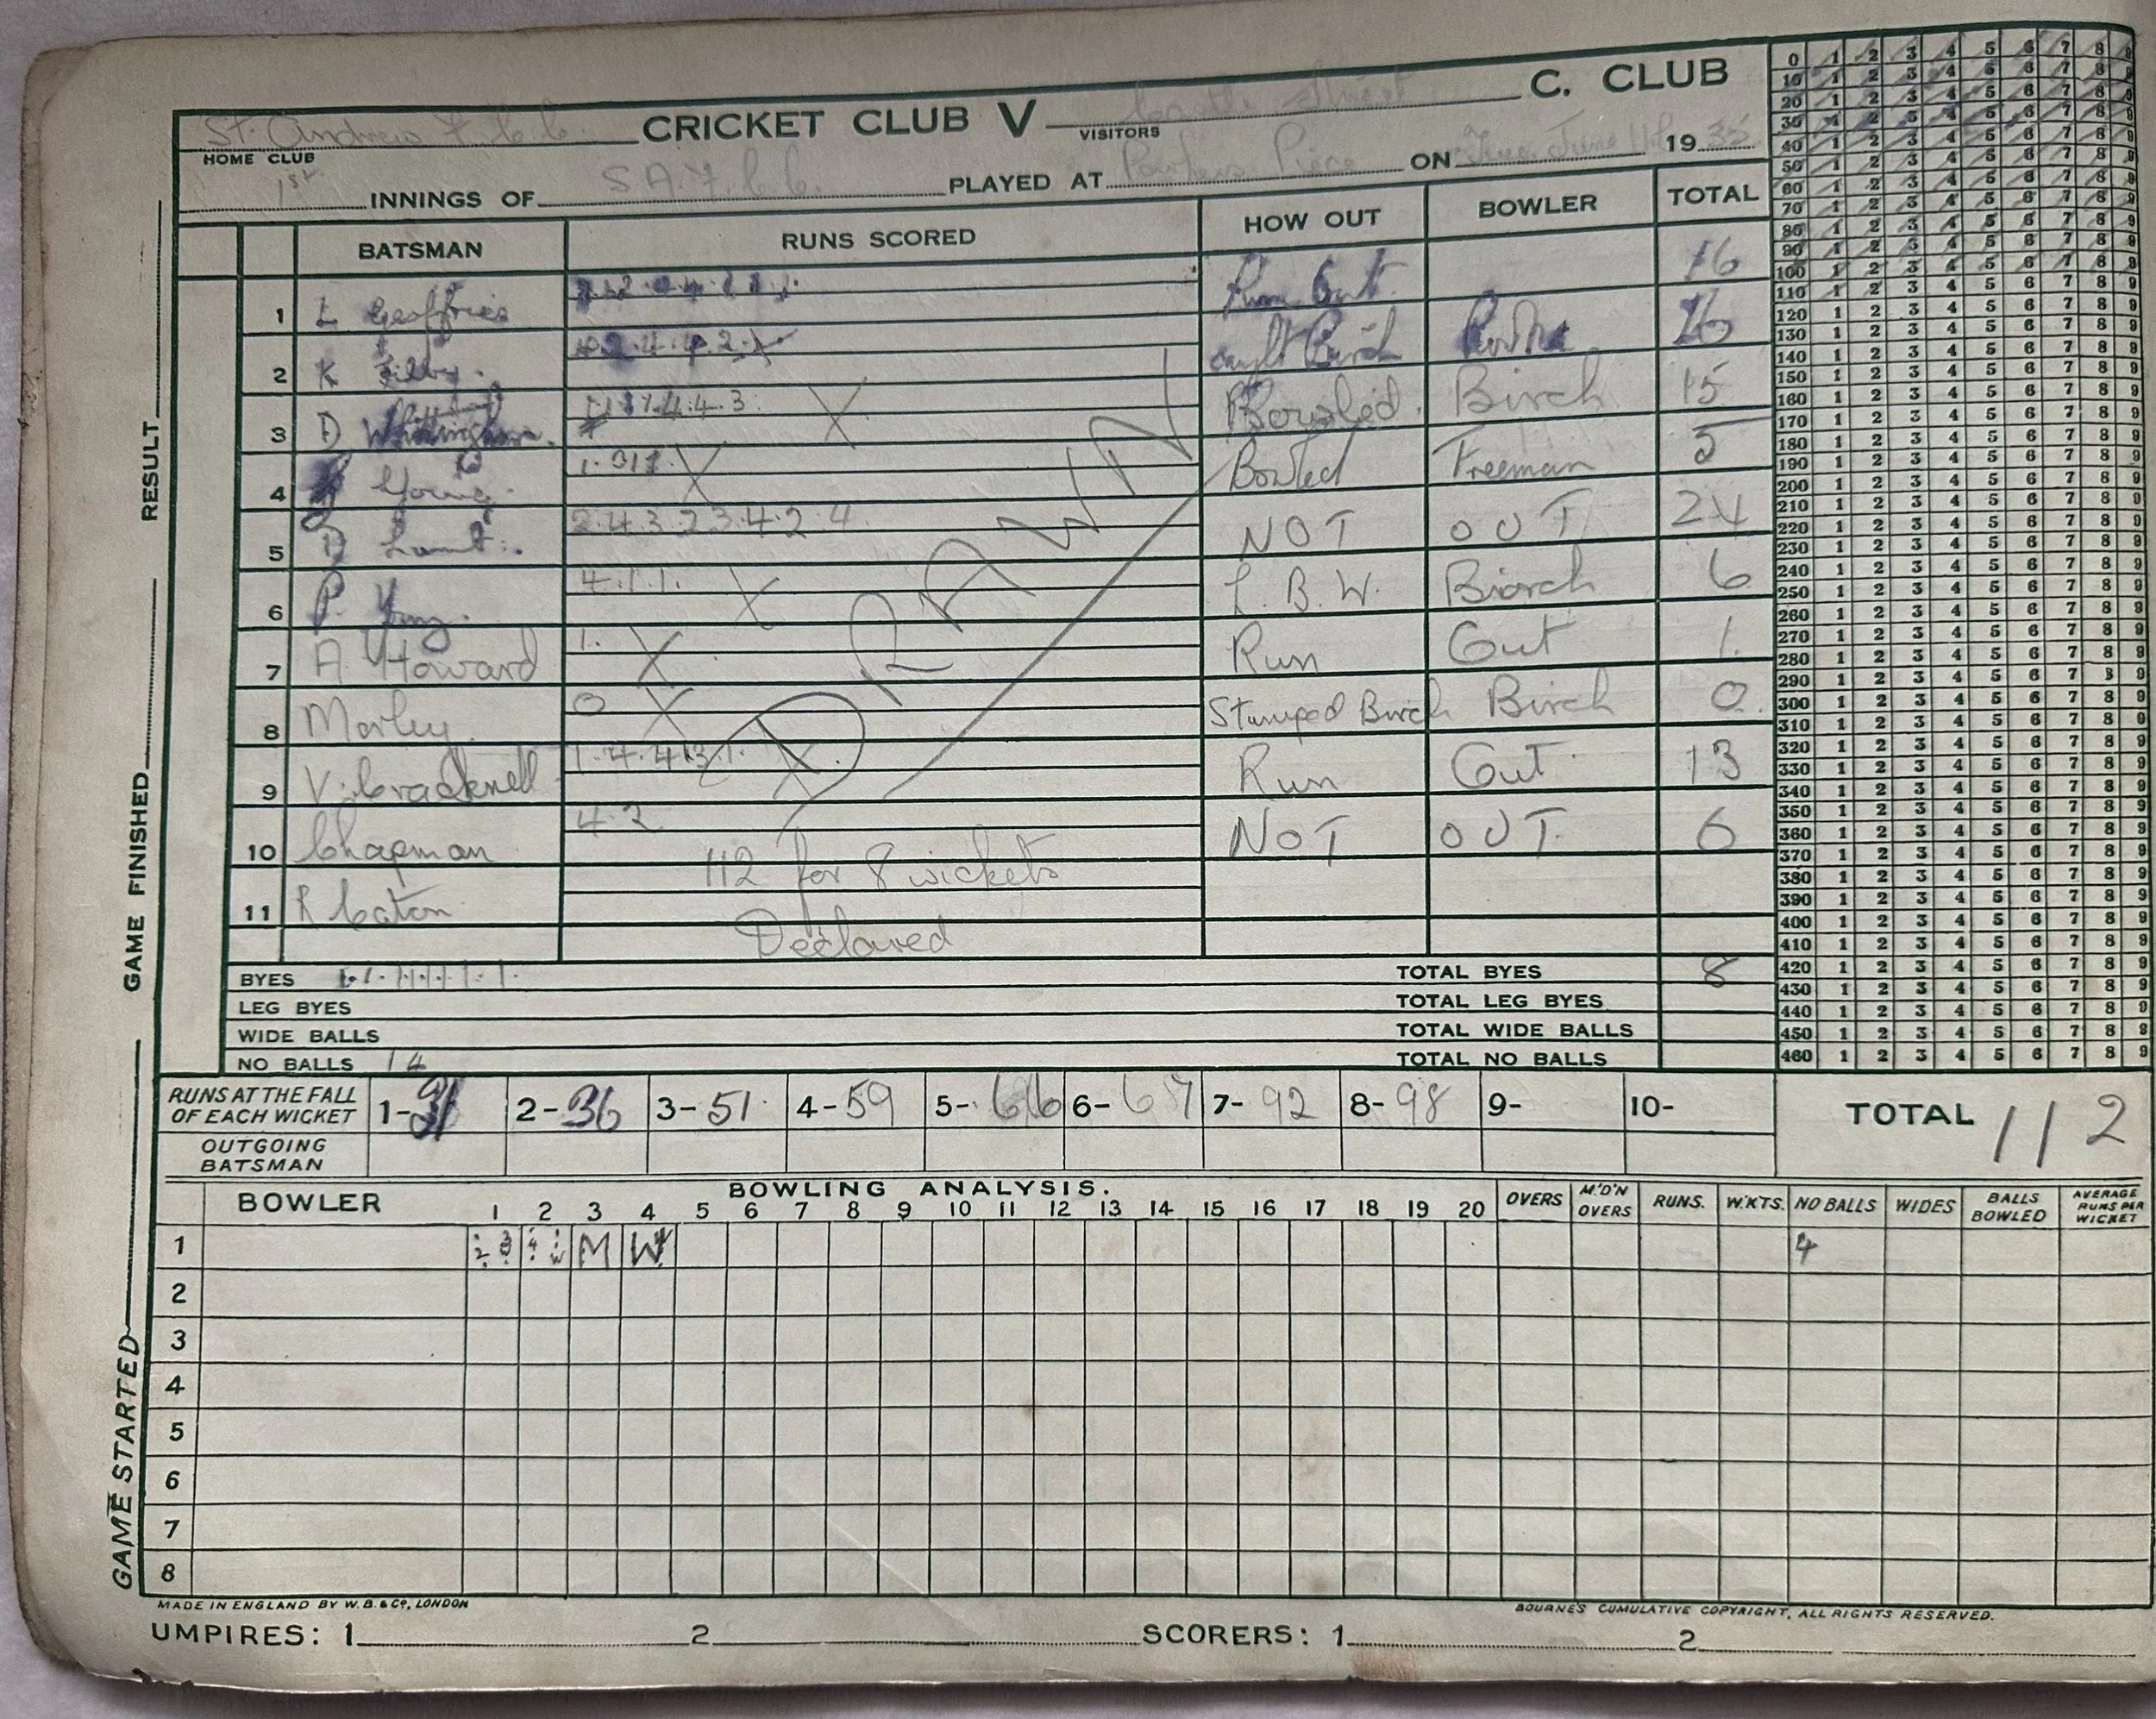 St. Andrew F.C.C. CRICKET CLUB V Castle Street C. CLUB
HOME CLUB VISITORS
1st INNINGS OF S A F.C.C. PLAYED AT Parkers Piece ON Tues. June 11th 1935
BATSMAN RUNS SCORED HOW OUT BOWLER TOTAL
1 L Geoffries Run Out 16
2 K Filby. caught Birch 16
3 D Whittingham. 4.4.3. X Bowled. Birch 15
4 Young. X Bowled Freeman 5
5 D Lamt. 2.4.3.2.3.4.2.4. NOT OUT 24
6 P. Young. 4.1.1. X L.B.W. Birch 6
7 A Howard 1. X Run Out 1.
8 Morley. 0 X Stumped Birch Birch 0.
9 V. Cracknell 1.4.4.3.1. X. Run Out. 13
10 Chapman 4.2 NOT OUT. 6
112 for 8 wickets
11 R Caton
Declared
DRAWN
BYES 1.1.1.1.1.1.1. TOTAL BYES 8
LEG BYES TOTAL LEG BYES
WIDE BALLS TOTAL WIDE BALLS
NO BALLS 14 TOTAL NO BALLS
RUNS AT THE FALL OF EACH WICKET 1-31 2-36 3-51. 4-59 5-66 6-67 7-92 8-98 9- 10- TOTAL 112
OUTGOING BATSMAN
BOWLING ANALYSIS.
BOWLER 1 2 3 4 5 6 7 8 9 10 11 12 13 14 15 16 17 18 19 20 OVERS M'D'N OVERS RUNS. W.KTS. NO BALLS WIDES BALLS BOWLED AVERAGE RUNS PER WICKET
1 M W 4
2
3
4
5
6
7
8
MADE IN ENGLAND BY W.B. & Co, LONDON BOURNE'S CUMULATIVE COPYRIGHT, ALL RIGHTS RESERVED.
UMPIRES: 1 2 SCORERS: 1 2
GAME STARTED GAME FINISHED RESULT
0 1 2 3 4 5 6 7 8 9
10 1 2 3 4 5 6 7 8 9
20 1 2 3 4 5 6 7 8 9
30 1 2 3 4 5 6 7 8 9
40 1 2 3 4 5 6 7 8 9
50 1 2 3 4 5 6 7 8 9
60 1 2 3 4 5 6 7 8 9
70 1 2 3 4 5 6 7 8 9
80 1 2 3 4 5 6 7 8 9
90 1 2 3 4 5 6 7 8 9
100 1 2 3 4 5 6 7 8 9
110 1 2 3 4 5 6 7 8 9
120 1 2 3 4 5 6 7 8 9
130 1 2 3 4 5 6 7 8 9
140 1 2 3 4 5 6 7 8 9
150 1 2 3 4 5 6 7 8 9
160 1 2 3 4 5 6 7 8 9
170 1 2 3 4 5 6 7 8 9
180 1 2 3 4 5 6 7 8 9
190 1 2 3 4 5 6 7 8 9
200 1 2 3 4 5 6 7 8 9
210 1 2 3 4 5 6 7 8 9
220 1 2 3 4 5 6 7 8 9
230 1 2 3 4 5 6 7 8 9
240 1 2 3 4 5 6 7 8 9
250 1 2 3 4 5 6 7 8 9
260 1 2 3 4 5 6 7 8 9
270 1 2 3 4 5 6 7 8 9
280 1 2 3 4 5 6 7 8 9
290 1 2 3 4 5 6 7 8 9
300 1 2 3 4 5 6 7 8 9
310 1 2 3 4 5 6 7 8 9
320 1 2 3 4 5 6 7 8 9
330 1 2 3 4 5 6 7 8 9
340 1 2 3 4 5 6 7 8 9
350 1 2 3 4 5 6 7 8 9
360 1 2 3 4 5 6 7 8 9
370 1 2 3 4 5 6 7 8 9
380 1 2 3 4 5 6 7 8 9
390 1 2 3 4 5 6 7 8 9
400 1 2 3 4 5 6 7 8 9
410 1 2 3 4 5 6 7 8 9
420 1 2 3 4 5 6 7 8 9
430 1 2 3 4 5 6 7 8 9
440 1 2 3 4 5 6 7 8 9
450 1 2 3 4 5 6 7 8 9
460 1 2 3 4 5 6 7 8 9